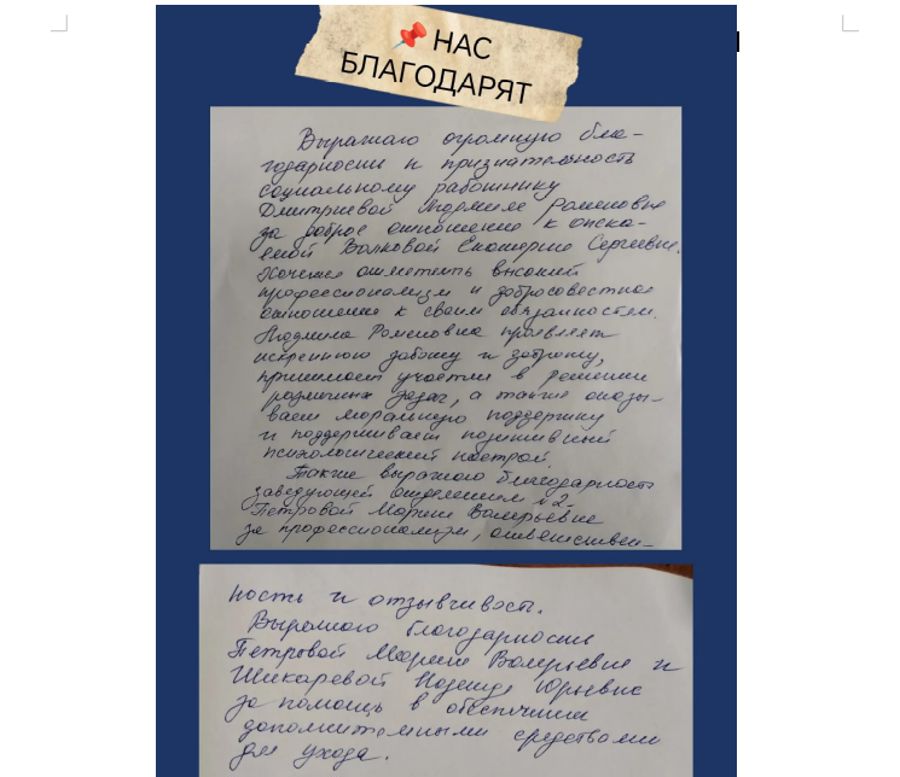 НАС
БЛАГОДАРЯТ
Выражаю огромную бла-
годарность и признательность
социальному работнику
Дмитриевой Людмиле Роменовне
за доброе отношение к опека-
емой Волковой Екатерине Сергеевне.
Хочется отметить высокий
профессионализм и добросовестное
отношение к своим обязанностям.
Людмила Роменовна проявляет
искреннюю заботу и доброту,
принимает участие в решении
различных задач, а также оказы-
вает моральную поддержку
и поддерживает позитивный
психологический настрой.
Также выражаю благодарность
заведующей отделением №2
Петровой Марине Валерьевне
за профессионализм, ответствен-
ность и отзывчивость.
Выражаю благодарность
Петровой Марине Валерьевне и
Шикаревой Надежде Юрьевне
за помощь в обеспечении
дополнительными средствами
для ухода.